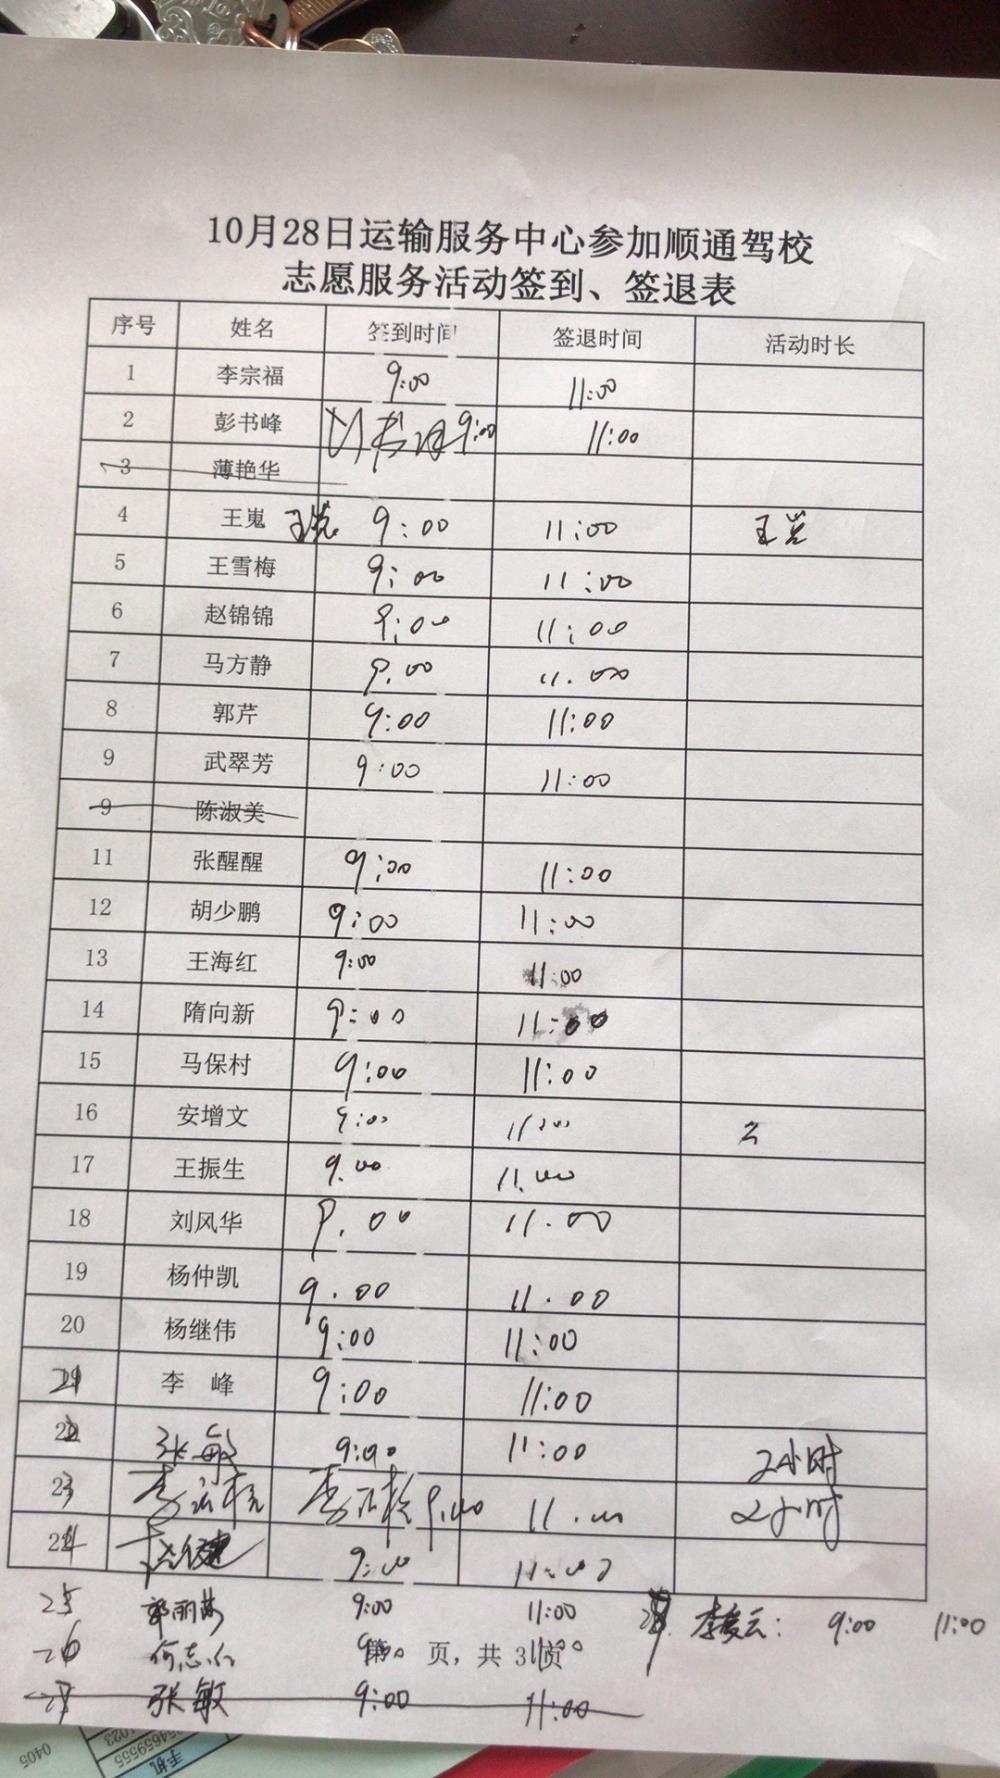 10月28日运输服务中心参加顺通驾校
志愿服务活动签到、签退表
序号 姓名 签到时间 签退时间 活动时长
1 李宗福 9:00 11:00
2 彭书峰 9:00 11:00
3 薄艳华
4 王嵬 9:00 11:00
5 王雪梅 9:00 11:00
6 赵锦锦 9:00 11:00
7 马方静 9.00 11.00
8 郭芹 9:00 11:00
9 武翠芳 9:00 11:00
9 陈淑美
11 张醒醒 9:00 11:00
12 胡少鹏 9:00 11:00
13 王海红 9:00 11:00
14 隋向新 9:00 11:00
15 马保村 9:00 11:00
16 安增文 9:00 11:00 2
17 王振生 9.00 11.00
18 刘风华 9.00 11.00
19 杨仲凯 9.00 11.00
20 杨继伟 9:00 11:00
21 李 峰 9:00 11:00
22 张敏 9:00 11:00 2小时
23 李 9.00 11.00 2小时
24 9:00 11:00
25 郭丽 9:00 11:00
李 云: 9:00 11:00
26 何志仁
第 页，共 3 页
张敏 9:00 11:00
手机
0405